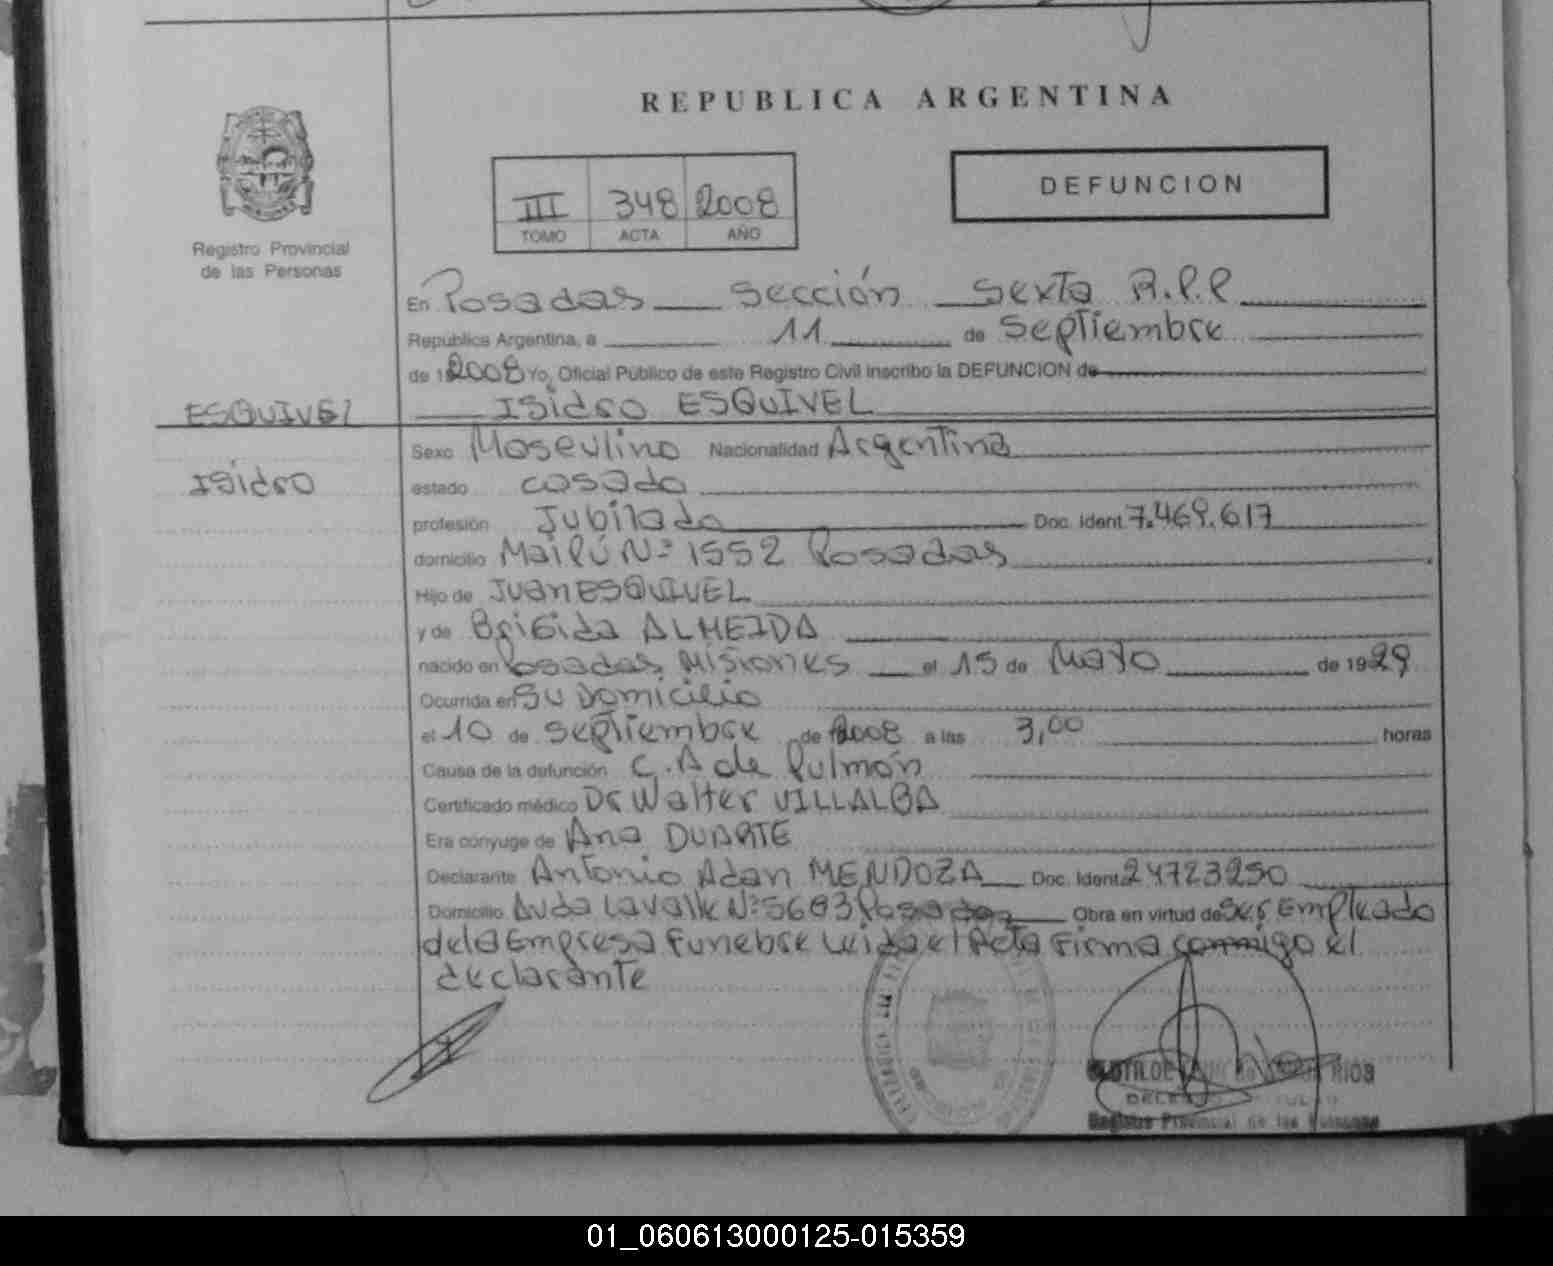 REPUBLICA ARGENTINA
III 348 2008
TOMO ACTA AÑO
DEFUNCION
Registro Provincial
de las Personas
En Posadas sección sexta R.P.P
República Argentina, a 11 de septiembre
de 1 2008 Yo, Oficial Público de este Registro Civil inscribo la DEFUNCION de
ESQUIVEL
Isidro ESQUIVEL
Isidro
Sexo Masculino Nacionalidad Argentina
estado casado
profesión Jubilado Doc. Ident. 7.469.617
domicilio Maipú Nº 1552 Posadas
Hijo de Juan ESQUIVEL
y de Brigida ALMEIDA
nacido en Posadas Misiones el 15 de Mayo de 1929
Ocurrida en Su Domicilio
el 10 de septiembre de 2008 a las 3,00 horas
Causa de la defunción C. A de Pulmón
Certificado médico Dr Walter VILLALBA
Era cónyuge de Ana DUARTE
Declarante Antonio Adan MENDOZA Doc. Ident. 24723250
Domicilio Avda Lavalle Nº 5603 Posadas Obra en virtud de Ser Empleado
de la Empresa Funebre Leida el Acta Firma conmigo el
declarante
RIOS
Registro Provincial de las Personas
01_060613000125-015359